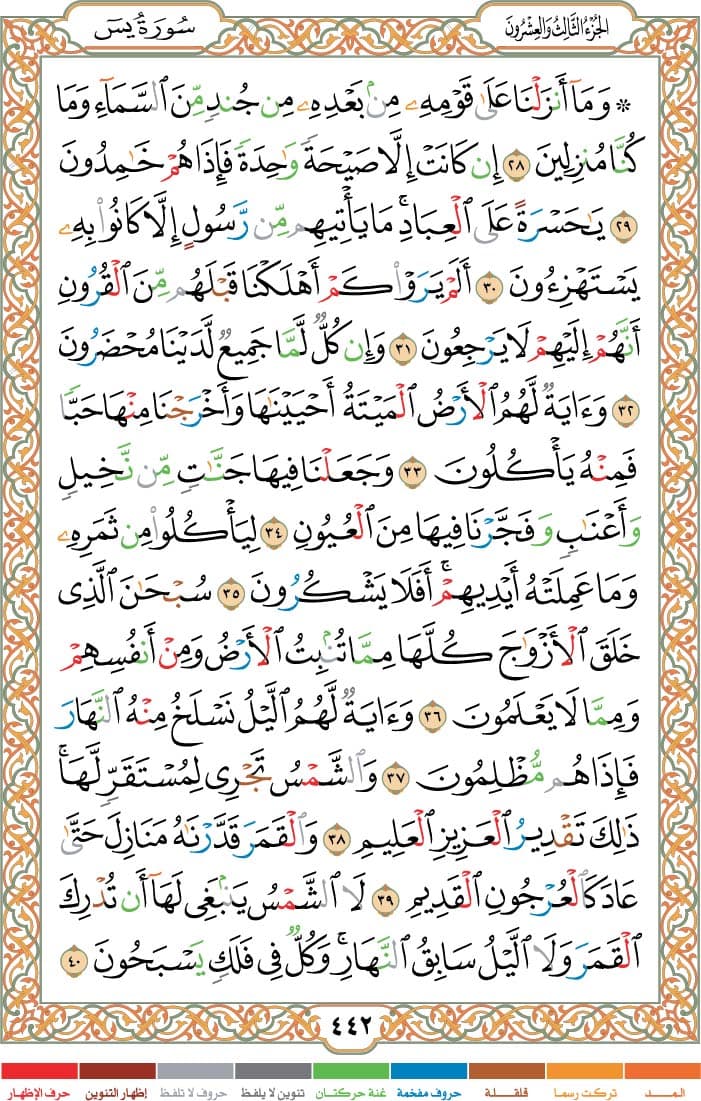 الجُزْءُ الثَّالِثُ وَالعِشْرُونَ
سُورَةُ يسٓ
۞ وَمَآ أَنزَلْنَا عَلَىٰ قَوْمِهِۦ مِنۢ بَعْدِهِۦ مِن جُندٍ مِّنَ ٱلسَّمَآءِ وَمَا
كُنَّا مُنزِلِينَ ٢٨ إِن كَانَتْ إِلَّا صَيْحَةً وَٰحِدَةً فَإِذَا هُمْ خَـٰمِدُونَ
٢٩ يَـٰحَسْرَةً عَلَى ٱلْعِبَادِ ۚ مَا يَأْتِيهِم مِّن رَّسُولٍ إِلَّا كَانُوا۟ بِهِۦ
يَسْتَهْزِءُونَ ٣٠ أَلَمْ يَرَوْا۟ كَمْ أَهْلَكْنَا قَبْلَهُم مِّنَ ٱلْقُرُونِ
أَنَّهُمْ إِلَيْهِمْ لَا يَرْجِعُونَ ٣١ وَإِن كُلٌّ لَّمَّا جَمِيعٌ لَّدَيْنَا مُحْضَرُونَ
٣٢ وَءَايَةٌ لَّهُمُ ٱلْأَرْضُ ٱلْمَيْتَةُ أَحْيَيْنَـٰهَا وَأَخْرَجْنَا مِنْهَا حَبًّا
فَمِنْهُ يَأْكُلُونَ ٣٣ وَجَعَلْنَا فِيهَا جَنَّـٰتٍ مِّن نَّخِيلٍ
وَأَعْنَـٰبٍ وَفَجَّرْنَا فِيهَا مِنَ ٱلْعُيُونِ ٣٤ لِيَأْكُلُوا۟ مِن ثَمَرِهِۦ
وَمَا عَمِلَتْهُ أَيْدِيهِمْ ۖ أَفَلَا يَشْكُرُونَ ٣٥ سُبْحَـٰنَ ٱلَّذِى
خَلَقَ ٱلْأَزْوَٰجَ كُلَّهَا مِمَّا تُنۢبِتُ ٱلْأَرْضُ وَمِنْ أَنفُسِهِمْ
وَمِمَّا لَا يَعْلَمُونَ ٣٦ وَءَايَةٌ لَّهُمُ ٱلَّيْلُ نَسْلَخُ مِنْهُ ٱلنَّهَارَ
فَإِذَا هُم مُّظْلِمُونَ ٣٧ وَٱلشَّمْسُ تَجْرِى لِمُسْتَقَرٍّ لَّهَا ۚ
ذَٰلِكَ تَقْدِيرُ ٱلْعَزِيزِ ٱلْعَلِيمِ ٣٨ وَٱلْقَمَرَ قَدَّرْنَـٰهُ مَنَازِلَ حَتَّىٰ
عَادَ كَٱلْعُرْجُونِ ٱلْقَدِيمِ ٣٩ لَا ٱلشَّمْسُ يَنۢبَغِى لَهَآ أَن تُدْرِكَ
ٱلْقَمَرَ وَلَا ٱلَّيْلُ سَابِقُ ٱلنَّهَارِ ۚ وَكُلٌّ فِى فَلَكٍ يَسْبَحُونَ ٤٠
٤٤٢
المـــد تركت رسما قلقـلة حروف مفخمة غنة حركتان تنوين لا يلفظ حروف لا تلفظ إظهار التنوين حرف الإظهار